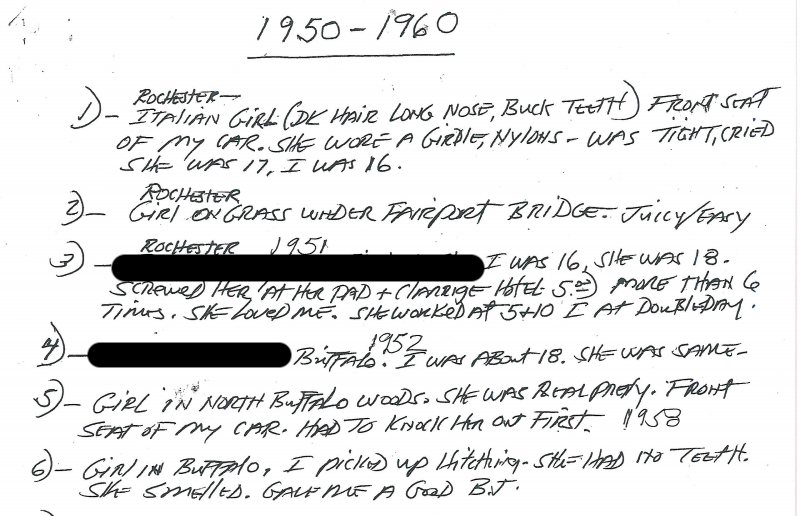 1950-1960
ROCHESTER-
1) - ITALIAN GIRL (DK HAIR LONG NOSE, BUCK TEETH) FRONT SEAT
OF MY CAR. SHE WORE A GIRDLE, NYLONS - WAS TIGHT, CRIED
SHE WAS 17, I WAS 16.
ROCHESTER
2) - GIRL ON GRASS UNDER FAIRPORT BRIDGE. JUICY/EASY
ROCHESTER 1951
3) - I WAS 16, SHE WAS 18.
SCREWED HER AT HER PAD + CLARRIGE HOTEL 5.00) MORE THAN 6
TIMES. SHE LOVED ME. SHE WORKED AT 5+10 I AT DOUBLEDAY.
1952
4) - BUFFALO. I WAS ABOUT 18. SHE WAS SAME-
5) - GIRL IN NORTH BUFFALO WOODS. SHE WAS REAL PRETY. FRONT
SEAT OF MY CAR. HAD TO KNOCK HER OUT FIRST. 1958
6) - GIRL IN BUFFALO, I PICKED UP HITCHING. SHE HAD NO TEETH.
SHE SMELLED. GAVE ME A GOOD BJ.